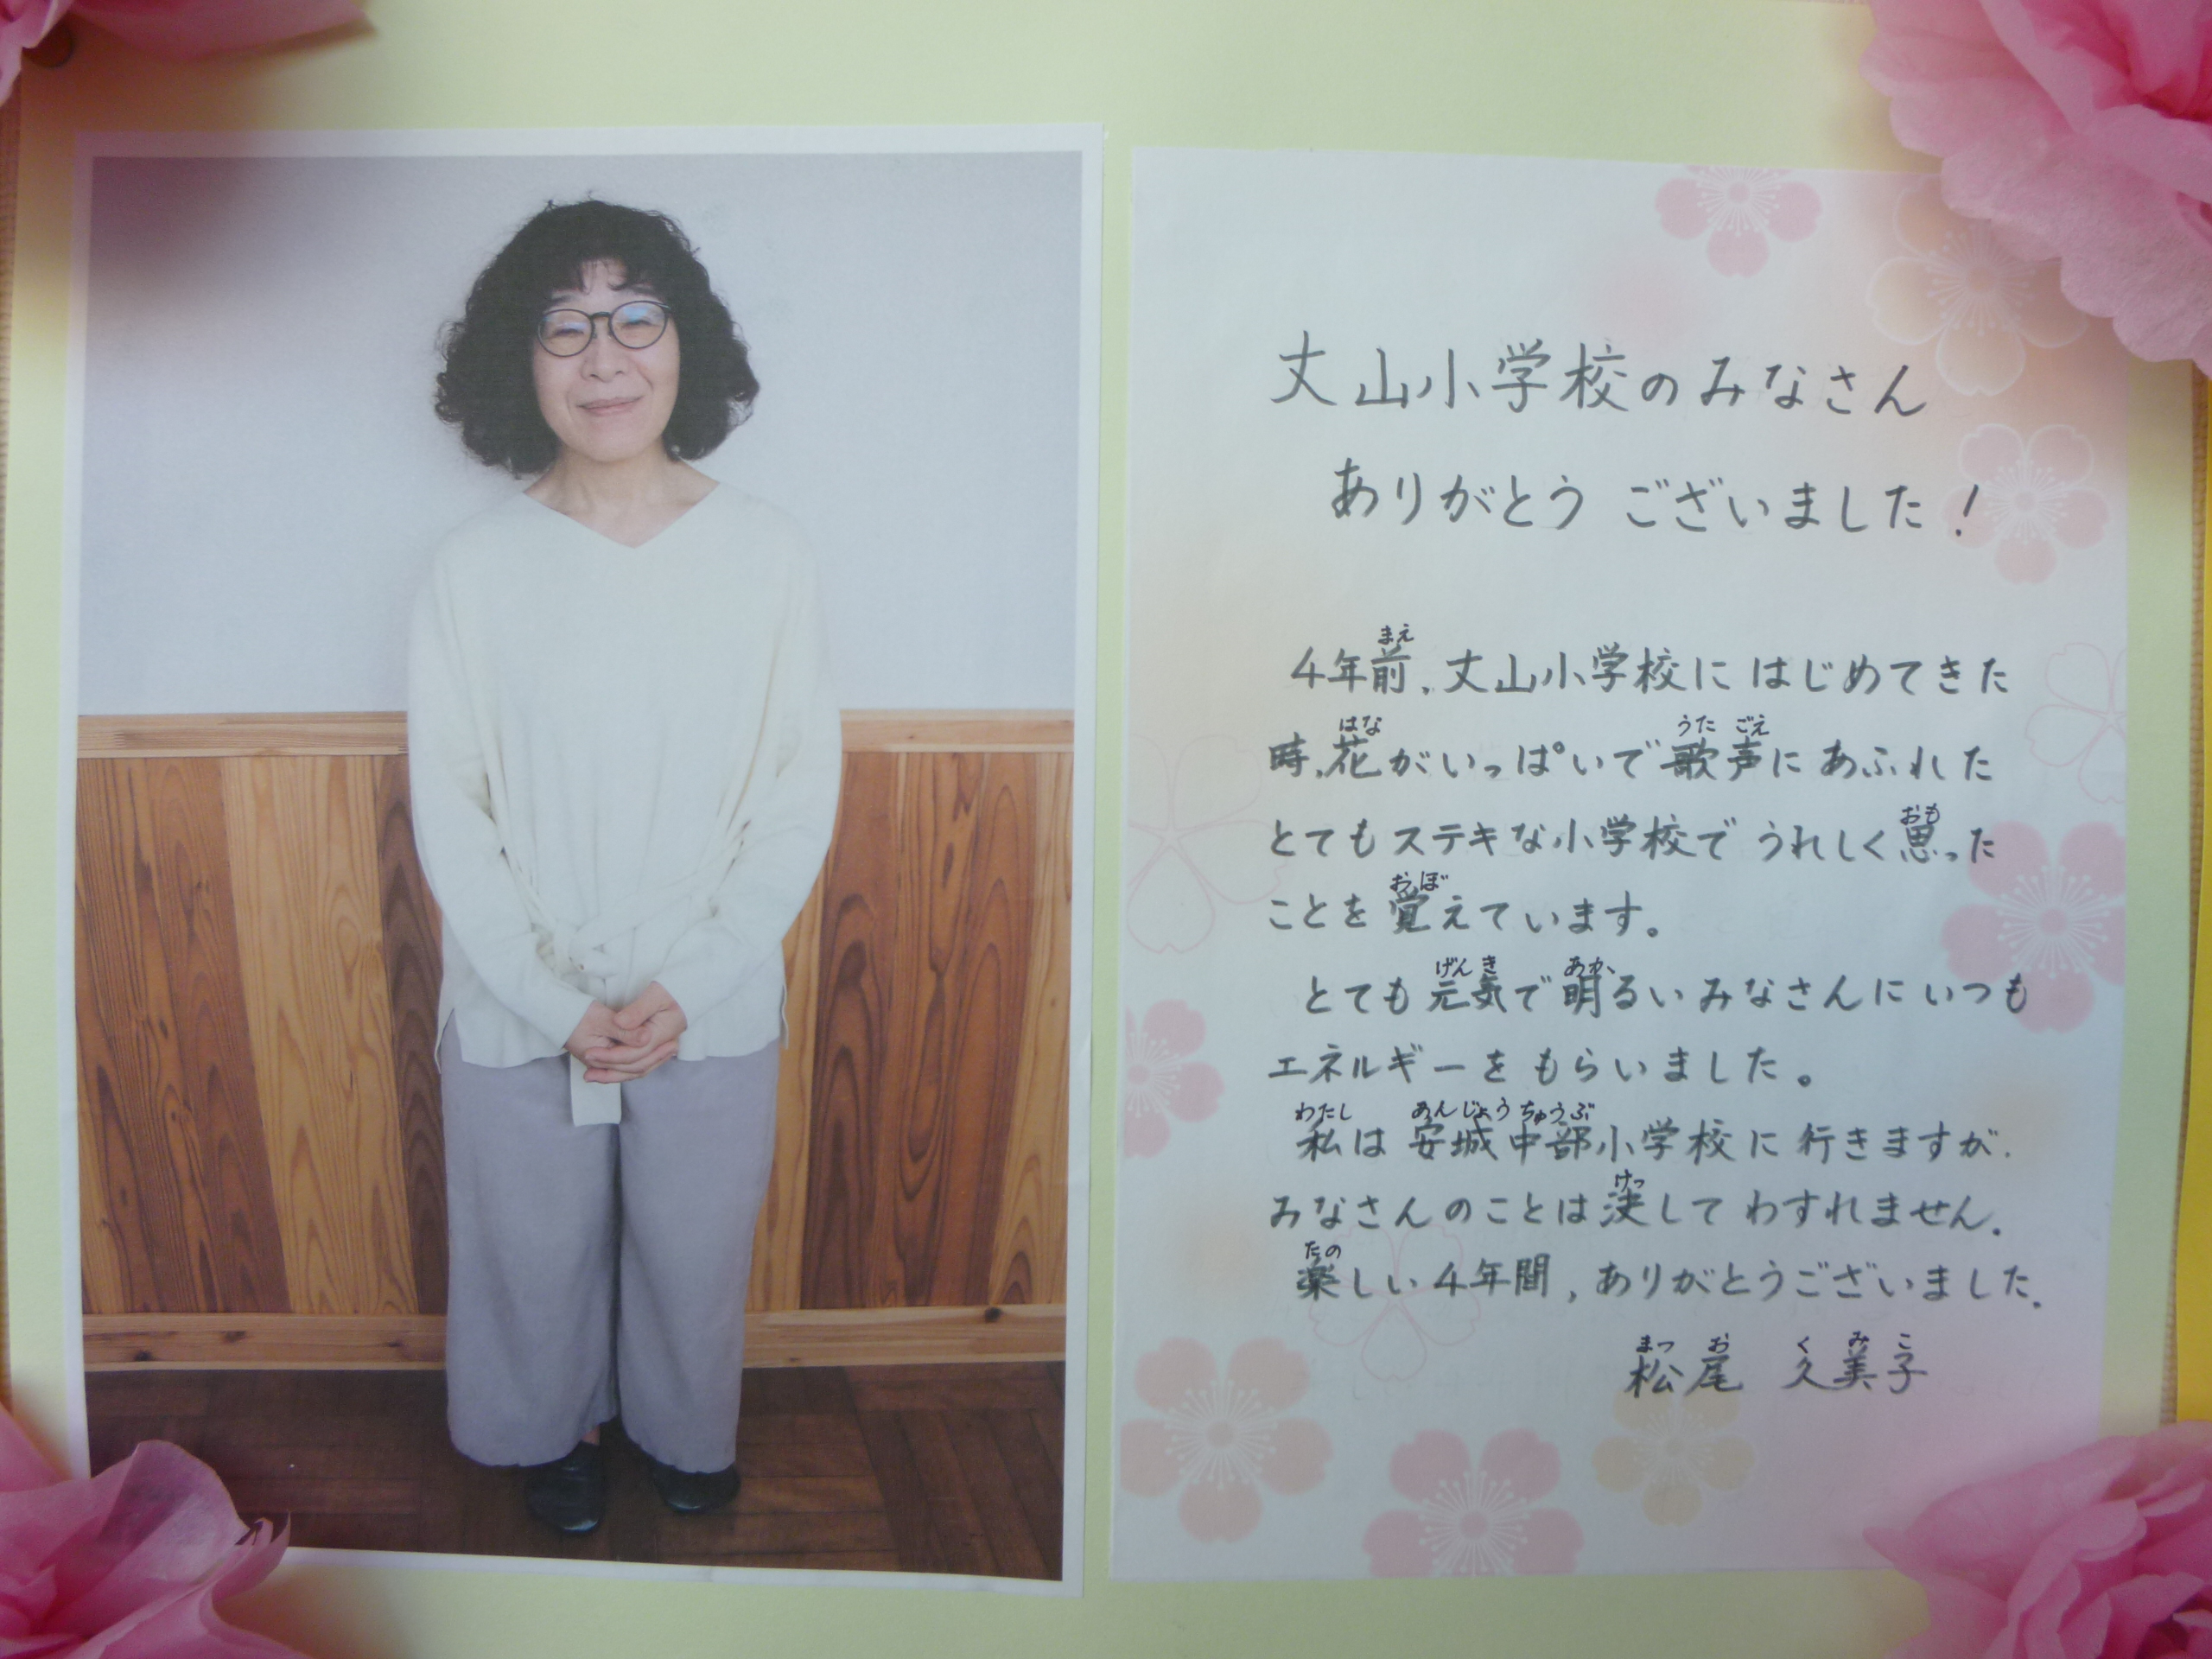 丈山小学校のみなさん
ありがとう ございました!
4年前、丈山小学校に はじめてきた
時、花がいっぱいで歌声に あふれた
とてもステキな小学校で うれしく思った
ことを 覚えています。
とても元気で明るいみなさんにいつも
エネルギーを もらいました。
私は 安城中部小学校に行きますが、
みなさんのことは決して わすれません。
楽しい4年間、ありがとうございました。
松尾 久美子